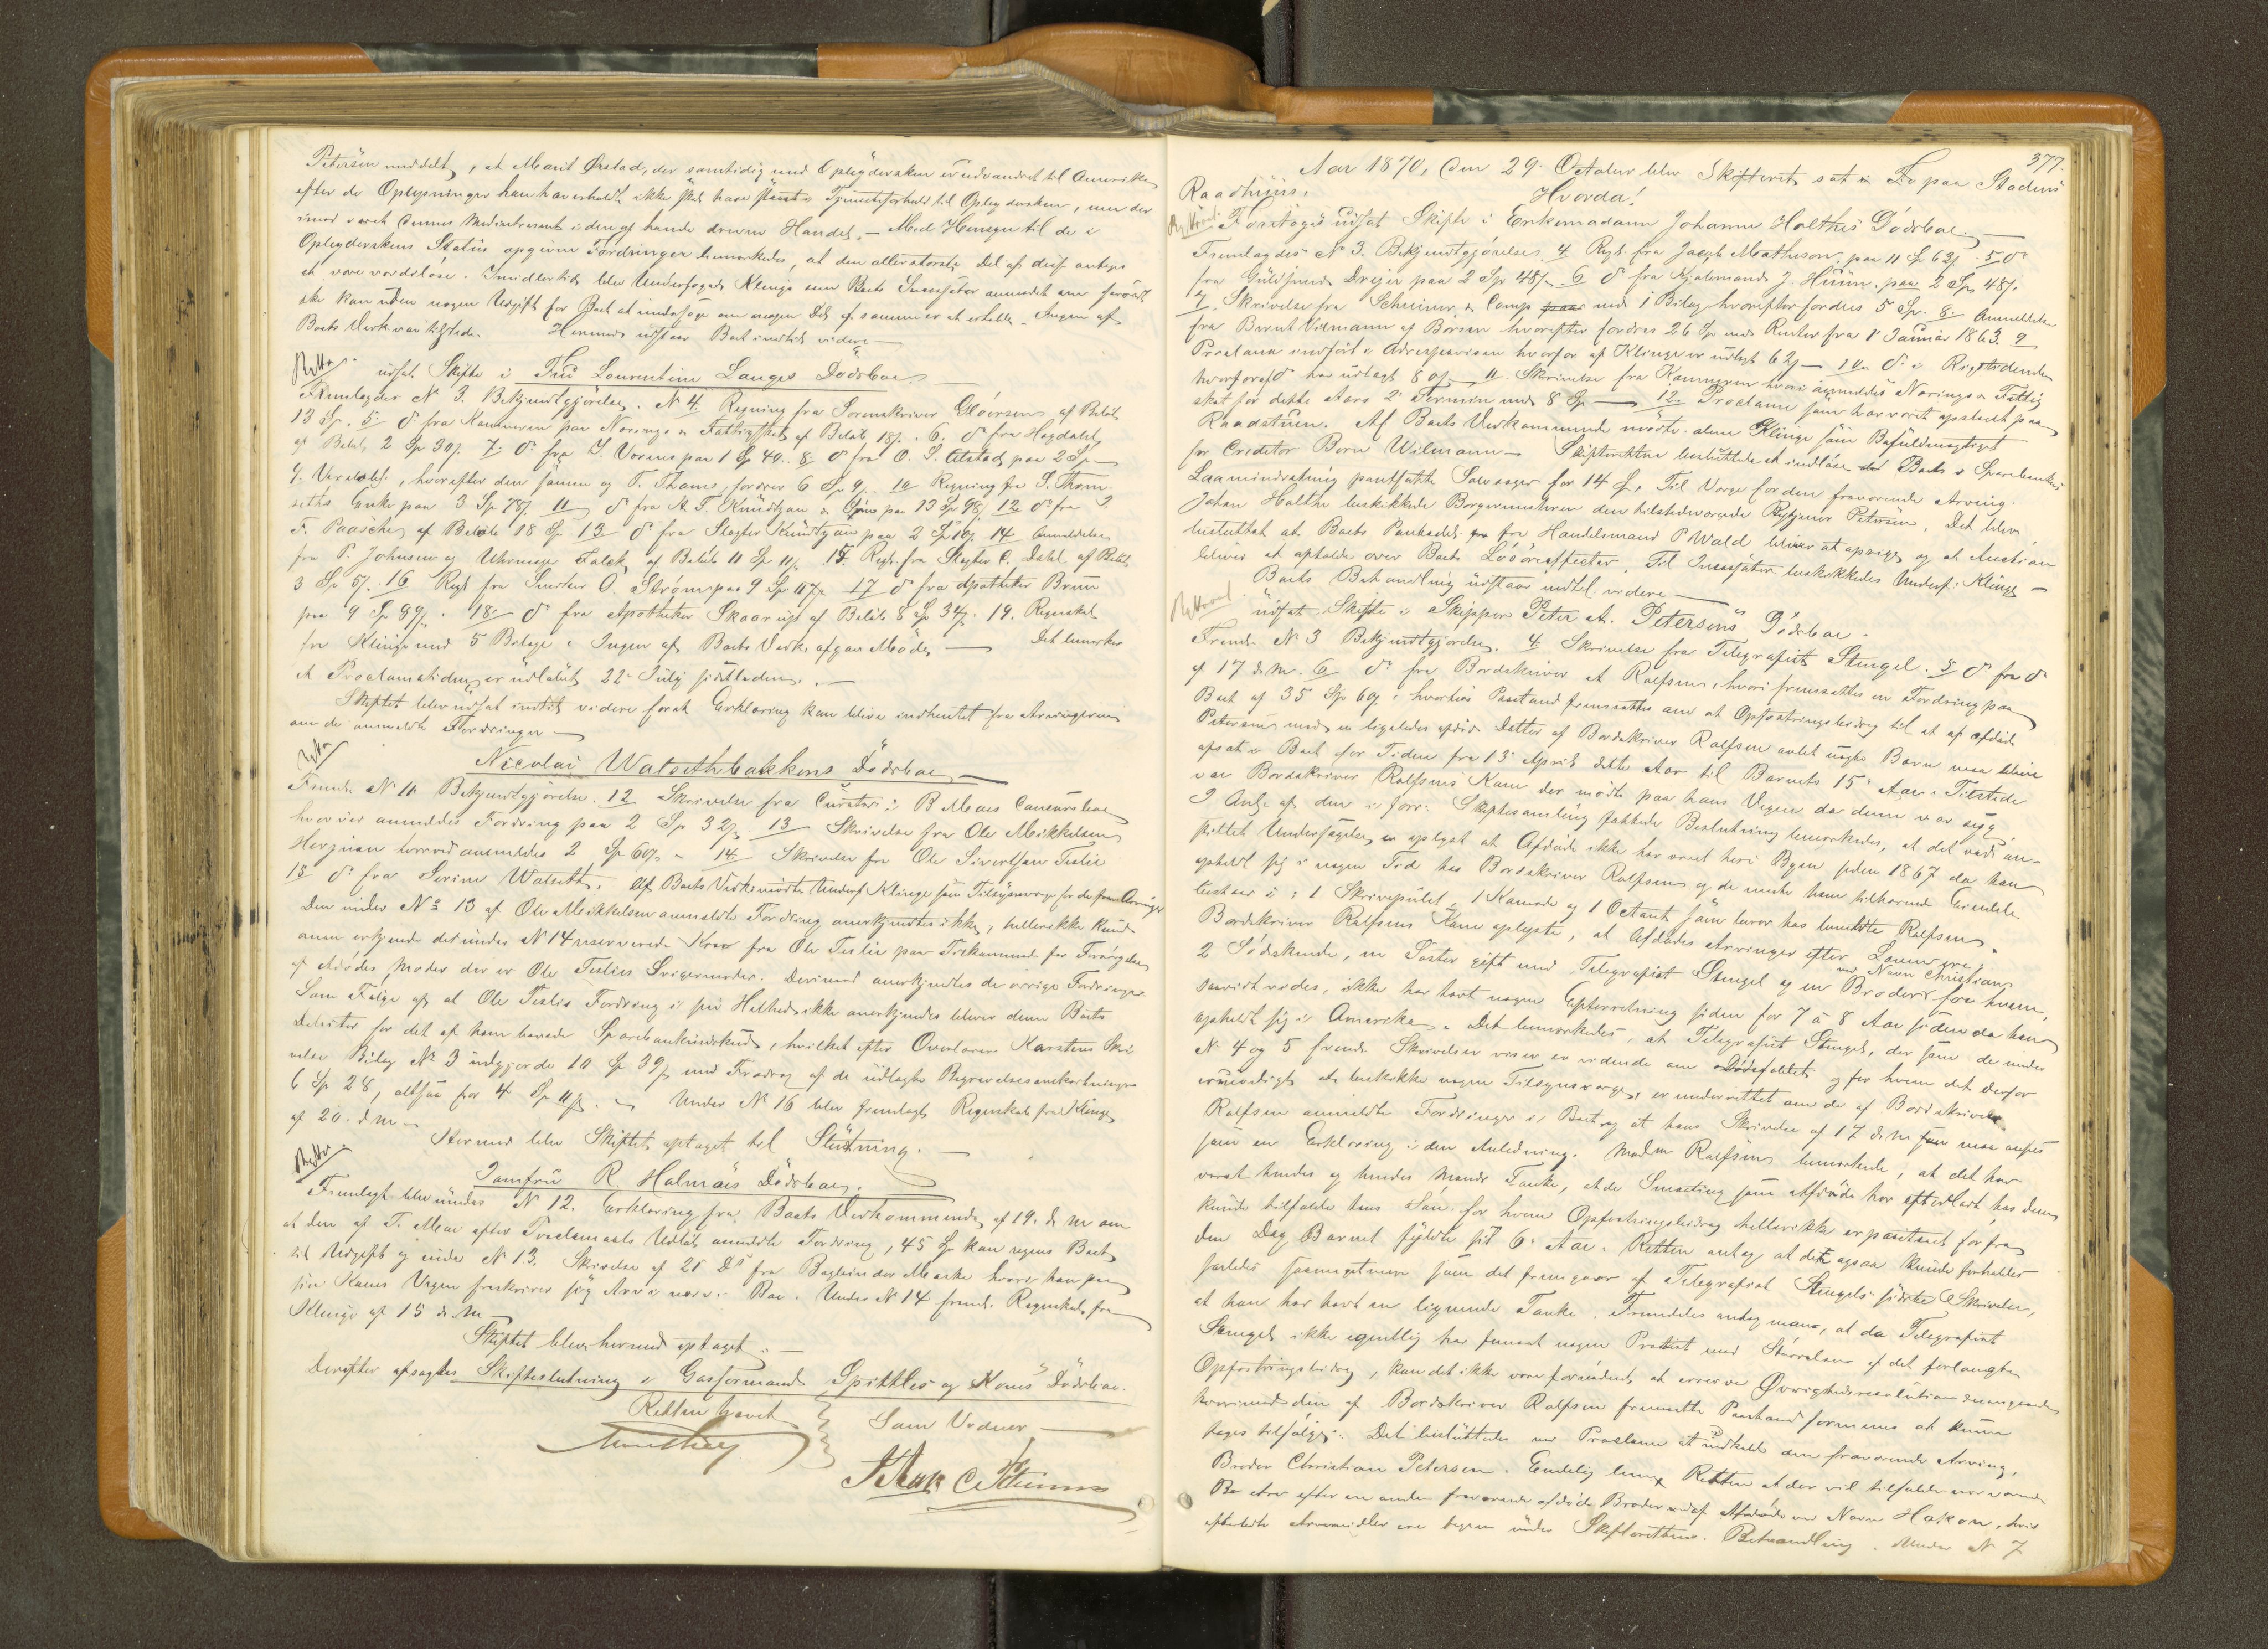 Petersen meddelt, at Marit Ørstad, der samtidig med Opbyderskens er udvandret til Amerika
efter de Oplysninger han har erholdt ikke skal have staaet i Tjenesteforhold til Opbydersken, men der
imod været dennes Medinteressent i den af hende drevne Handel. – Med Hensyn til de i
Opbyderskens Status opgivne Fordringer bemærkedes, at den allerstørste Del af disse antages
at være værdiløse. Imidlertid blev Underfoged Klinge som Boets Incassator anmodet om forsaavidt
ske kan uden nogen Udgift for Boet at undersøge om nogen Del af samme er at erholde. Ingen af
Boets Vedk. var tilstede. Hermed udstaar Boet indtil videre –
udsat Skifte i Fru Laurentine Langes Dødsboe.
Fremlagdes N 3. Bekjendtgjørelse. N 4. Regning fra Sorenskriver Gløersen af Beløb
13 Sp. 5 do fra Kæmneren paa Nærings & Fattigskat af Beløb 18 s. 6. do fra Hagdahl
af Beløb 2 Sp 30 s. 7. do fra I. Worens paa 1 Sp 40. 8. do fra O. S. Alstad paa 2 Sp. –
9. , hvorefter den samme og T. Thams fordrer 6 Sp 9 s. 10 Regning fra S. Thom
seths Enke paa 3 Sp 78 s. 11 do fra A. T. Kundtzon & paa 13 Sp 98 s 12 do fra J.
F. Paasche af Beløb 18 Sp 13 do fra Slagter Kundtzon paa 2 Sp 10 s. 14 Anmeldelse
fra P. Johnsen og Uhrmager Falck af Beløb 11 Sp 11 s. 15. Regn. fra Slagter C. Dahl af Beløb
3 Sp 57. 16 Regn fra Snedker O. Strøm paa 9 Sp 117 s. 17 do fra Apotheker Bruun
paa 4 Sp 89 s. 18. do fra Apotheker Skaarup af Beløb 8 Sp 34 s. 19. Regnskab
fra Klinge med 5 Bilage. Ingen af Boets Vedk. afgav Møde – Det bemærkes
at Proclamatiden er udløbet 22. Juli sidstleden. –
Skiftet blev udsat indtil videre forat Erklæring kan blive indhentet fra Arvingerne
om de anmeldte Fordringer –
Nicolai Watsethbakkens Dødsboe –
Fremlz. N 11 Bekjendtgjørelse. 12 Skrivelse fra Curator i B Moes Concursboe
hvorved anmeldes Fordring paa 2 Sp 32 s. 13 Skrivelse fra Ole Mikkelsen
Herjuan hvorved anmeldes 2 Sp 60 s. 14 Skrivelse fra Ole Sivertsen Teslie
15 do fra Serine Watseth. Af Boets Vedk. mødte Underf. Klinge som Tilsynsværge for de frav. Arvinger
Den under No 13 af Ole Mikkelsen anmeldte Fordring anerkjendtes ikke, hellerikke kunde
man erkjende det under N 14 reserverede Krav fra Ole Teslie paa Trekammer for Forsørgelse
af Afdødes Moder der er Ole Teslies Svigermoder. Derimod anerkjendtes de øvrige Fordringer.
Som Følge af at Ole Teslies Fordring i sin Helhed ikke anerkjendes bliver denne Boets
Debitor for det af ham hævede Sparebankindskud, hvilket efter Overlærer Karstens Skri
velse Bilag No 3 udgjorde 10 Sp 39 s med Fradrag af de udlagte Begravelsesomkostninger
6 Sp 28, altsaa for 4 Sp 11 s. – Under N 16 blev fremlagt Regnskab fra Klinge
af 20. d. M. –
Hermed blev Skiftet optaget til Slutning. –
Jomfru R. Holmøes Dødsboe.
Fremlagt blev under N 12. Erklæring fra Boets Vedkommende af 19. d. M. om
at den af T. Moe efter Proclamaets Udløb anmeldte Fordring, 45 Sp kan regnes Boet
til Udgift og under N 13. Skrivelse af 21 Ds fra Bogbinder Marke hvori han paa
sin Kones Vegne fraskriver sig Arv i nærv. Boe. Under N 14 freml. Regnskab fra
Klinge af 15 d. M. –
Skiftet blev hermed optaget. –
Derefter afsagdes Skifteslutning i Gasformand Spittles og Kones Dødsboe.
Retten hævet
Som Vidner

377.
Aar 1870, den 29. October blev Skifteret sat i Le paa Stadens
Raadhuus.
Hvorda!
Foretoges udsat Skifte i Enkemadam Johanne Holthes Dødsboe. –
Fremlagdes No 3. Bekjendtgjørelse. 4 Regn. fra Jacob Matheson paa 11 Sp 63 s. 5 do
fra Guldsmed Dreyer paa 2 Sp 48 s. 6 do fra Kjøbmand J. Huun paa 2 Sp 48 s.
7. Skrivelse fra Schreiner & Comp paa med 1 Bilag hvorefter fordres 5 Sp. 8. Anmeldelse
fra Bernt Vilmann af Børsen hvorefter fordres 26 Sp med Renter fra 1 Januar 1863. 9
Proclama indført i Adresseavisen hvorfor af Klinge er udlagt 62 s – 10. do i Rigstidende
hvorforaf do har udlagt 80 s – 11. Skrivelse fra Kæmneren hvori anmeldes Nærings & Fattig
skat for dette Aars 2 Termin med 8 Sp – 12. Proclama som har været opslaaet paa
Raadstuen. Af Boets Vedkommende mødte alene Klinge som Befuldmægtiget
for Creditor Bernt Wilmann – Skifteretten besluttede at indløse det Boets i Sparebankens
Laaneindretning pantsatte Sølvsager for 14 Sp. Til Værge for den fraværende Arving
Johan Holthe beskikkedes Borgermesteren den tilstedeværende Petersen. Det blev
besluttet at Boets Panteobl. fra Handelsmand P Wold bliver at opsige, og at Auction
bliver at afholde over Boets Løsøreeffecter. Til Incassator beskikkedes Underf. Klinge –
Boets Behandling udstaar indtil videre –
udsat Skifte i Skipper Peter A. Petersens Dødsboe –
Freml. No 3 Bekjendtgjørelse. 4 Skrivelse fra Telegrafist Stengel. 5 do fra do
af 17 d. M. 6 do fra Bordskriver A Rolfsen, hvori fremsættes en Fordring paa
Boet af 35 Sp 60 s, hvorhos Paastand fremsættes om at Opfostringsbidrag til et af Afdøde
Petersen med en ligeledes afdød Datter af Bordskriver Rolfsen avlet uægte Barn maa blive
afsat i Boet for Tiden fra 13 April dette Aar til Barnets 15. Aar. Tilstede
var Bordskriver Rolfsens Kone der mødte paa hans Vegne da denne var syg.
I Anl. af den i forr. Skiftesamling fattede Beslutning bemærkedes, at det ved an-
stillet Undersøgelse er oplyst at Afdøde ikke har været her i Byen siden 1867 da han
opholdt sig i nogen Tid hos Bordskriver Rolfsen og de ham tilhørende Eiendele
bestaar i: 1 Skrivepult, 1 Komode og 1 Octant som beror hos bemeldte Rolfsen.
Bordskriver Rolfsens Kone oplyste, at Afdødes Arvinger efter Loven ere:
2 Sødskende, en Søster gift med Telegrafist Stengel og en Broder ved Navn Christian for hvem,
saavidt vides, ikke har havt nogen Efterretning siden for 7 a 8 Aar siden da han
opholdt sig i Amerika. Det bemærkedes, at Telegrafist Stengel, der som de under
N 4 og 5 freml. Skrivelser viser er vidende om Dødsfaldet og for hvem det derfor
er unødigt at beskikke nogen Tilsynsværge, er underrettet om de af Bordskriver
Rolfsen anmeldte Fordringer i Boet og at hans Skrivelse af 17 d. M. maa ansees
som en Erklæring i den Anledning. Madm Rolfsen bemærkede, at det har
været hendes og hendes Mands Tanke, at de Smaating som Afdøde har efterladt hos dem
kunde tilfalde hans Søn for hvem Opfostringsbidrag hellerikke er paastaaet for fra
den Dag Barnet fyldte sit 6 Aar. Retten antog at dette ogsaa kunde forholdes
saaledes saameget mere som det fremgaar af Telegrafist Stengels sidste Skrivelse,
at han har havt en lignende Tanke. Fremdeles antog man, at da Telegrafist
Stengel ikke egentlig har fremsat nogen Protest mod Størrelsen af det forlangte
Opfostringsbidrag, kan det ikke være fornødent at erhverve Øvrighedsresolution desangaaende
hvorimod den af Bordskriver Rolfsen fremsatte Paastand formenes at kunne
tages tilfølge. Det besluttedes ved Proclama at indkalde den fraværende Arving,
Broder Christian Petersen. Endelig bemærkede Retten at der vil tilfalde nærværende
Bo Arv efter en anden fraværende afdøde Broder af Afdøde ved Navn Hakon, hvis
efterladte Arvemidler ere tagne under Skifterettens Behandling. Under N 7